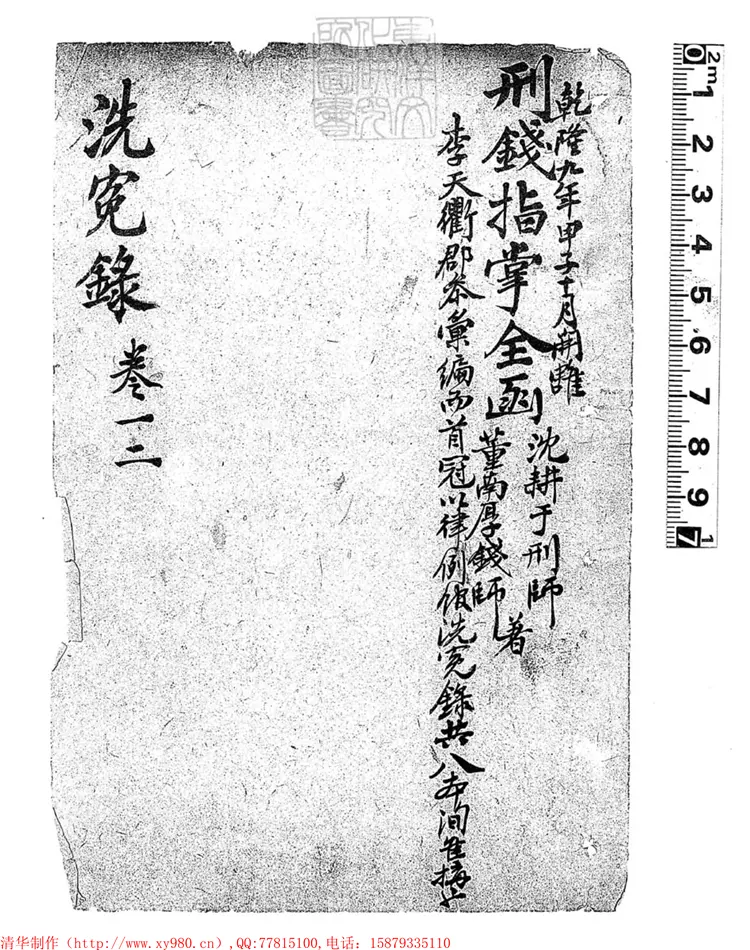 乾隆九年甲子十月開雕
刑錢指掌全函
沈耕于刑師
董南厚錢師
著
李天衢郡彙編而首冠以律例 洗寃錄共八本洵
洗寃錄 卷一二
0 1 2 3 4 5 6 7 8 9
2m
清华制作（http://www.xy980.cn）,QQ:77815100,电话：15879335110